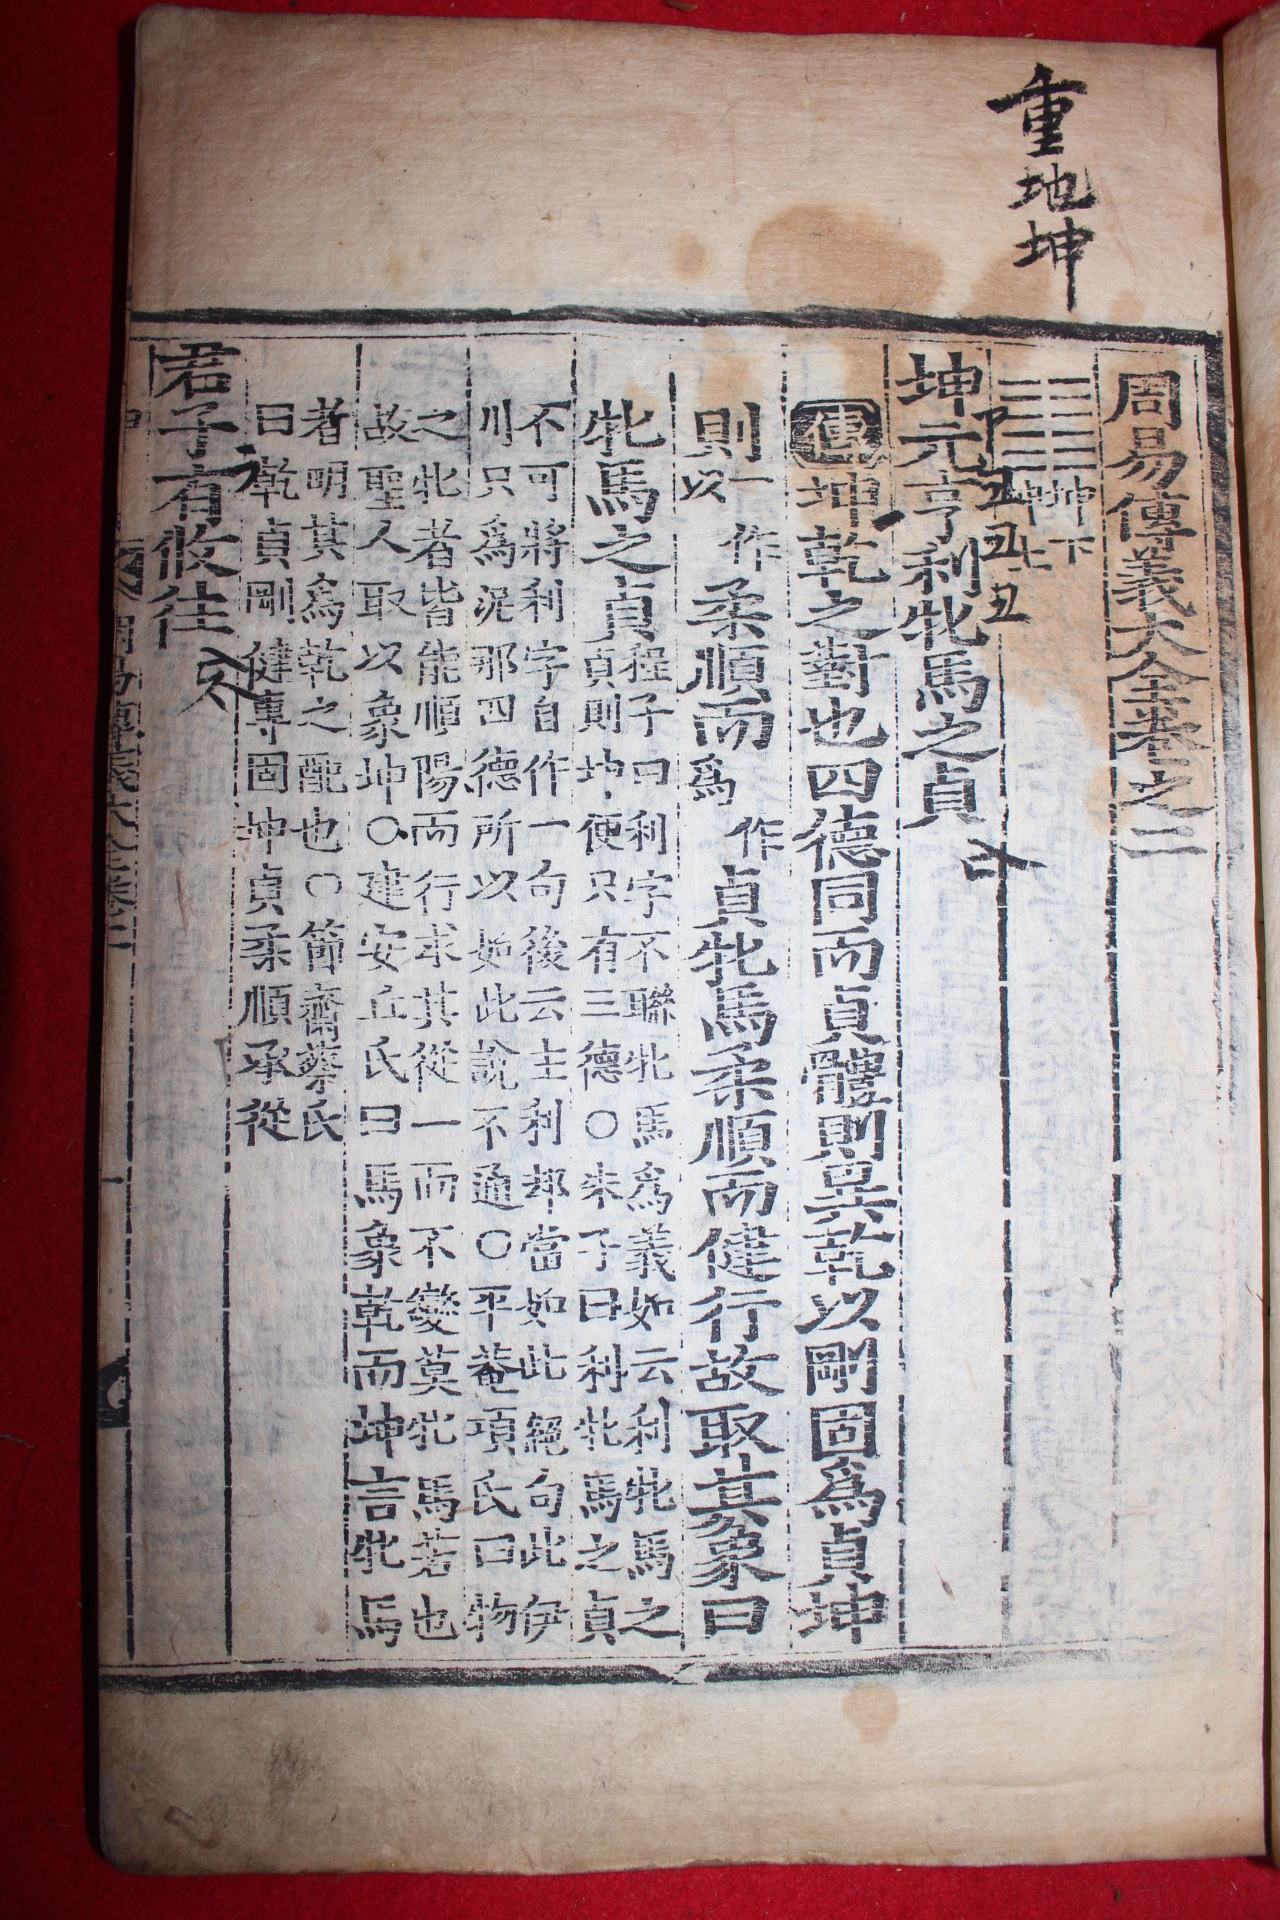 重地坤
周易傳義大全卷之二
坤下
坤上
坤元亨利牝馬之貞
傳坤乾之對也四德同而貞體則異乾以剛固爲貞坤
則一作以柔順而一作爲貞牝馬柔順而健行故取其象曰
牝馬之貞程子曰利字不聯牝馬爲義如云利牝馬之
貞則坤便只有三德○朱子曰利牝馬之貞
不可將利字自作一句後云主利却當如此絕句此伊
川只爲泥那四德所以如此說不通○平菴項氏曰物
之牝者皆能順陽而行求其從一而不變莫牝馬若也
故聖人取以象坤○建安丘氏曰馬象乾而坤言牝馬
者明其爲乾之配也○節齋蔡氏
曰乾貞剛健專固坤貞柔順承從
君子有攸往
周易傳義大全卷二
一